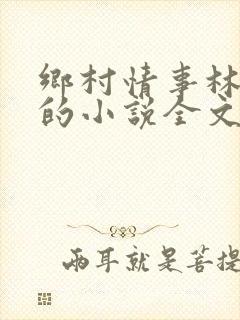 鄉村情事林
的小說全文
兩耳就是菩提